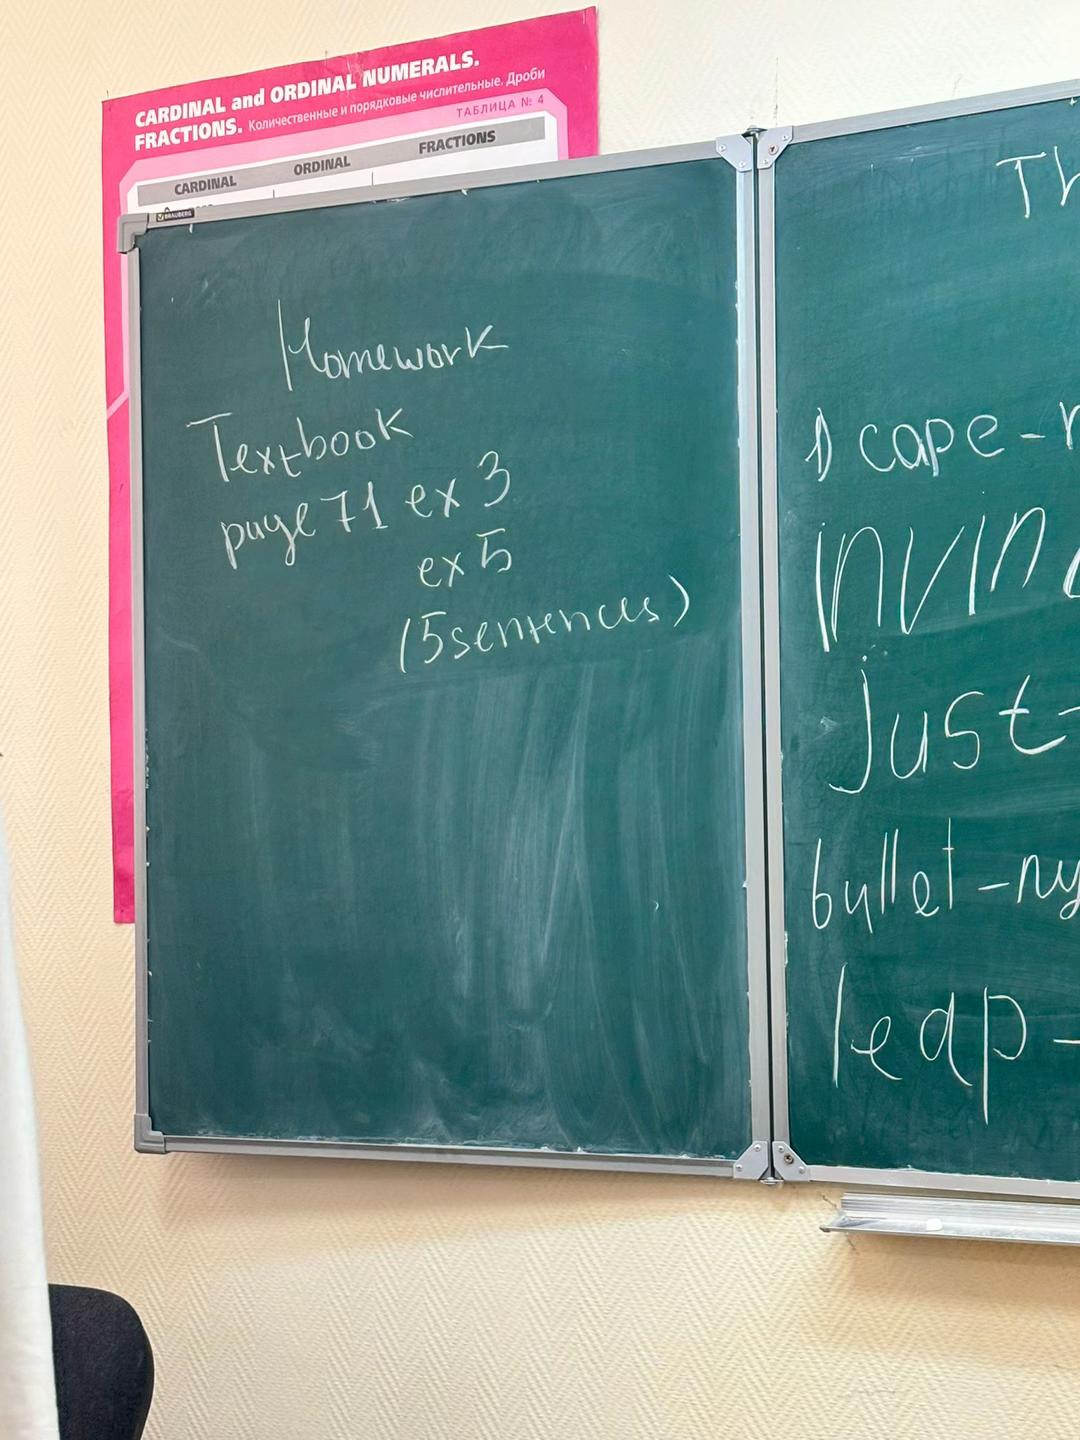 CARDINAL and ORDINAL NUMERALS.
FRACTIONS. Количественные и порядковые числительные. Дроби
ТАБЛИЦА № 4
CARDINAL ORDINAL FRACTIONS
BRAUBERG
Homework
Textbook
page 71 ex 3
ex 5
(5 sentences)
Th
1) cape -
invin
just -
bullet - пу
leap -